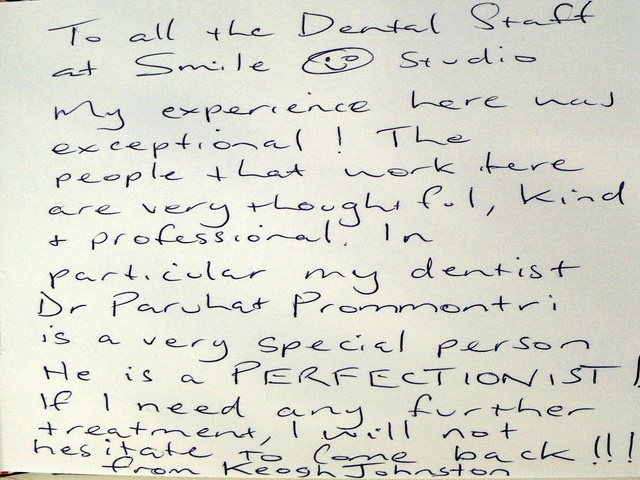 To all the Dental Staff
at Smile Studio
My experience here was
exceptional! The
people that work here
are very thoughtful, kind
+ professional. In
particular my dentist
Dr Paruhat Prommontri
is a very special person
He is a PERFECTIONIST!
If I need any further
treatment, I will not
hesitate to come back!!!
from Keogh Johnston